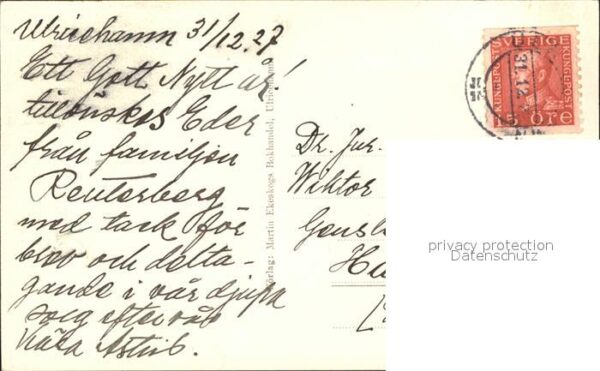 Ulricehamn 31/12.27
Ett Gott Nytt år!
tillönskas Eder
från familjen
Reuterberg
med tack för
brev och delta-
gande i vår djupa
sorg efter vår
kära Astrid.
Förlag: Martin Ekeskogs Bokhandel, Ulricehamn
Dr. Jur.
Wiktor
Ha
SVERIGE
KUNGL.POST
KUNGL.POST
15 ÖRE
31.12
privacy protection
Datenschutz